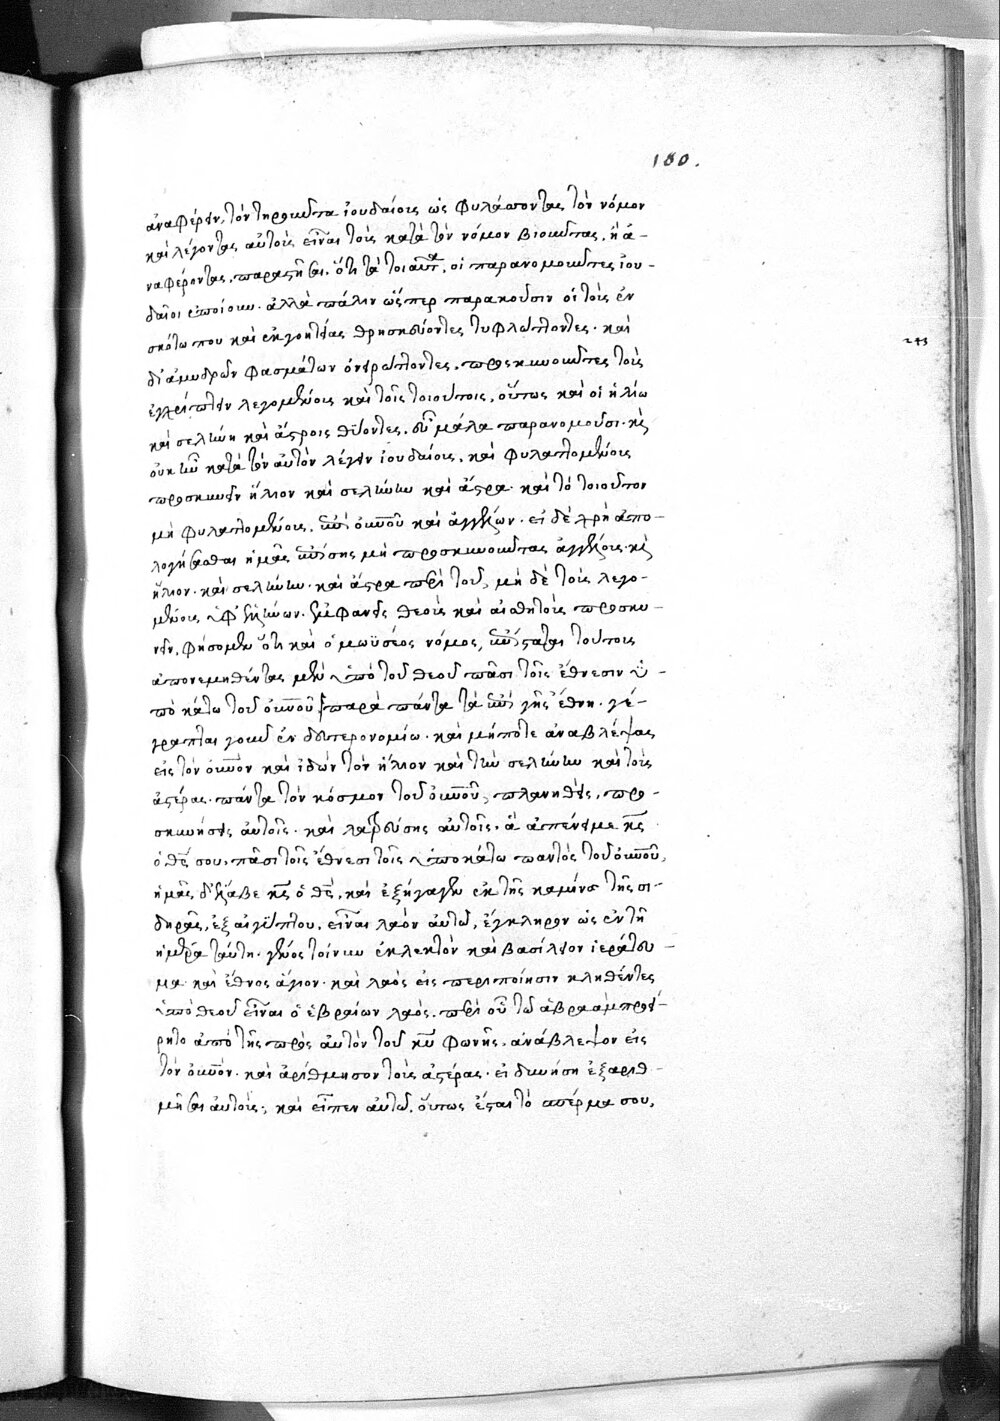 180.
ἀναφέρειν, τὸν τηροῦντα ἰουδαίοις ὡς φυλάττοντας τὸν νόμον
καὶ λέγοντας αὐτοὺς εἶναι τοὺς κατὰ τὸν νόμον βιοῦντας, ἢ ἀ-
ναφέροντας, παραστῆσαι, ὅτι τὰ τοιαῦτα, οἱ παρανομοῦντες ἰου-
δαῖοι ἐποίουν· ἀλλὰ πάλιν ὥσπερ παρακούσιν οἱ τοὺς ἐν
σκότω που καὶ ἐκ γοητείας θρησκεύοντες τυφλώττοντες· καὶ
δι' ἀμυδρῶν φασμάτων ὀνειρώττοντες, προσκυνοῦντες τοὺς
ἐγχρίπτειν λεγομένους καὶ τοῖς τοιούτοις, οὕτως καὶ οἱ ἡλίω
καὶ σελήνη καὶ ἄστροις θύοντες, εὖ μάλα παρανομοῦσι· καὶ
οὐκ ἦν κατὰ τὸν αὐτὸν λέγειν ἰουδαίους, καὶ φυλαττομένους
προσκυνεῖν ἥλιον καὶ σελήνην καὶ ἄστρα· καὶ τὸ τοιοῦτον
μὴ φυλαττομένους, ἐπὶ οὐνοῦ καὶ ἀγγέλων· εἰ δὲ χρὴ ἀπο-
λογήσασθαι ἡμᾶς ἐπίσης μὴ προσκυνοῦντας ἀγγέλους· καὶ
ἥλιον· καὶ σελήνην· καὶ ἄστρα περὶ τοῦ, μὴ δὲ τοὺς λεγο-
μένους ὑφ' ἑλλήνων, ἐμφανεῖς θεοὺς καὶ αἰσθητοὺς προσκυ-
νεῖν, φήσομεν ὅτι καὶ ὁ μωϋσέος νόμος, ἐπίσταται τούτους
ἀπονεμηθέντας μὲν ὑπὸ τοῦ θεοῦ πᾶσι τοῖς ἔθνεσιν ὑ-
πὸ κάτω τοῦ οὐνοῦ παρὰ πάντα τὰ ἐπὶ γῆς ἔθνη· γέ-
γραπται γοῦν ἐν δευτερονομίω· καὶ μήποτε ἀναβλέψας
εἰς τὸν οὐνὸν καὶ ἰδὼν τὸν ἥλιον καὶ τὴν σελήνην καὶ τοὺς
ἀστέρας· πάντα τὸν κόσμον τοῦ οὐνοῦ, πλανηθεὶς, προ-
σκυνήσεις αὐτοῖς· καὶ λατρεύσης αὐτοῖς· ἃ ἀπένειμε κς
ὁ θς σου, πᾶσι τοῖς ἔθνεσι τοῖς ὑποκάτω παντὸς τοῦ οὐνοῦ,
ἡμᾶς δ' ἔλαβε κς ὁ θς, καὶ ἐξήγαγεν ἐκ τῆς καμίνου τῆς σι-
δηρᾶς, ἐξ αἰγύπτου, εἶναι λαὸν αὐτῶ, ἔγκληρον ὡς ἐν τῆ
ἡμέρα ταύτη· γένος τοίνυν ἐκλεκτὸν καὶ βασίλειον ἱεράτευ-
μα καὶ ἔθνος ἅγιον· καὶ λαὸς εἰς περιποίησιν κληθέντες
ὑπὸ θεοῦ εἶναι ὁ ἑβραίων λαὸς, περὶ οὗ τῶ ἀβραὰμ προεί-
ρητο ἀπὸ τῆς πρὸς αὐτὸν τοῦ κυ φωνῆς, ἀνάβλεψον εἰς
τὸν οὐνὸν· καὶ ἀρίθμησον τοὺς ἀστέρας· εἰ δυνήση ἐξαριθ-
μῆσαι αὐτοὺς, καὶ εἶπεν αὐτῶ, οὕτως ἔσται τὸ σπέρμα σου,